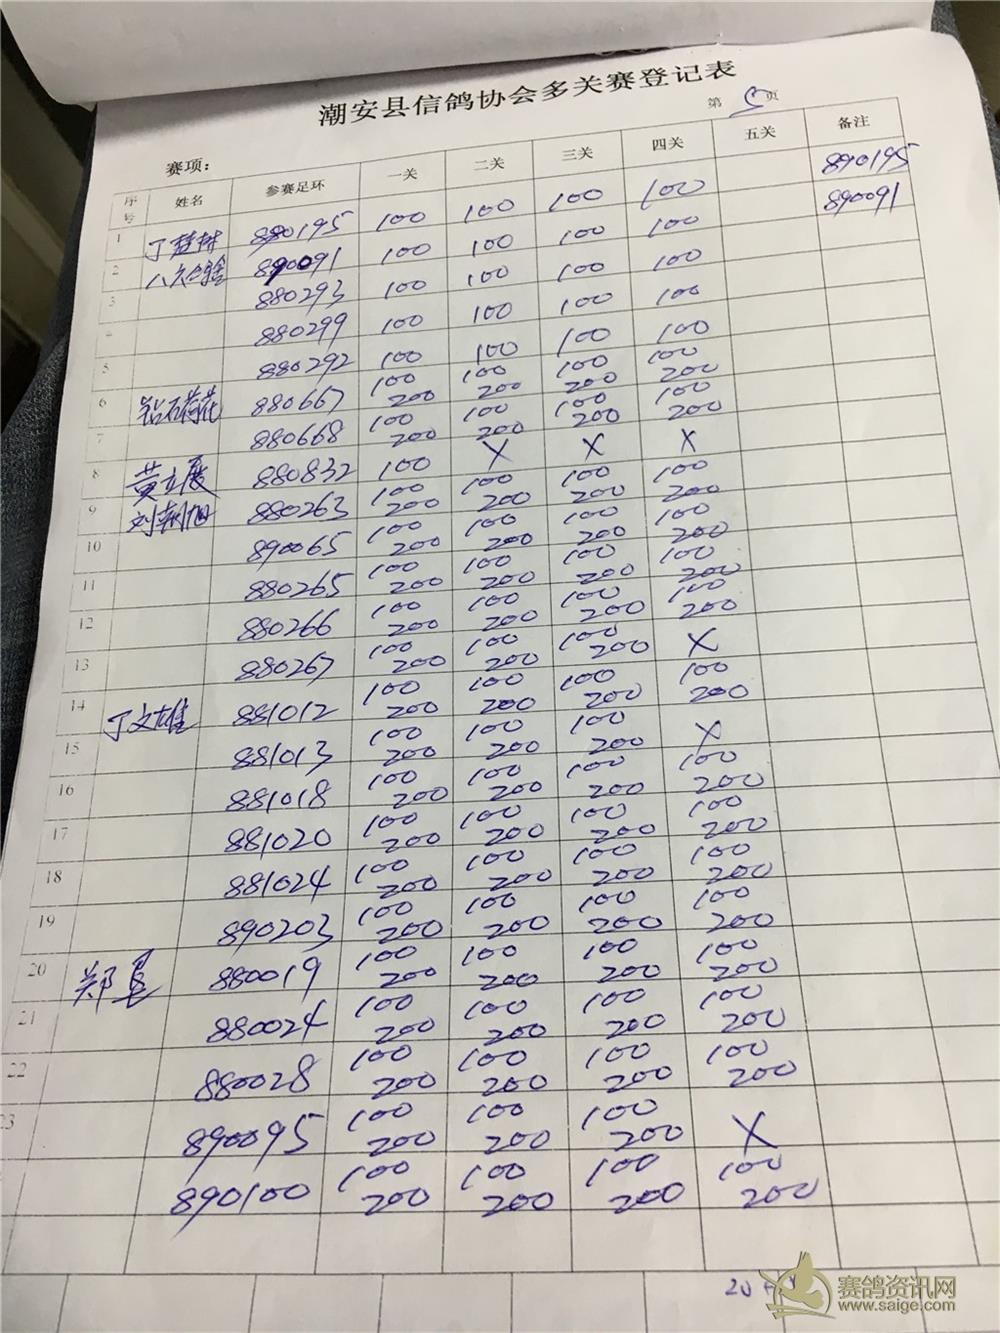 潮安县信鸽协会多关赛登记表
赛项: 第 5 页
序号 姓名 参赛足环 一关 二关 三关 四关 五关 备注
1 丁楚树 880195 100 100 100 100 890195
2 890091 100 100 100 100 890091
3 880293 100 100 100 100
4 880299 100 100 100 100
5 880292 100 100 100 100
6 钻石荷花 880667 100 200 100 200 100 200 100 200
7 880668 100 200 100 200 100 200 100 200
8 黄立展 880832 100 X X X
9 刘朝旭 880263 100 200 100 200 100 200 100 200
10 890065 100 200 100 200 100 200 100 200
11 880265 100 200 100 200 100 200 100 200
12 880266 100 200 100 200 100 200 100 200
13 880267 100 200 100 200 100 200 X
14 丁文雄 881012 100 200 100 200 100 200 100 200
15 881013 100 200 100 200 100 200 X
16 881018 100 200 100 200 100 200 100 200
17 881020 100 200 100 200 100 200 100 200
18 881024 100 200 100 200 100 200 100 200
19 890203 100 200 100 200 100 200 100 200
20 郑 880019 100 200 100 200 100 200 100 200
21 880024 100 200 100 200 100 200 100 200
22 880028 100 200 100 200 100 200 100 200
23 890095 100 200 100 200 100 200 X
890100 100 200 100 200 100 200 100 200
20
赛鸽资讯网
www.saige.com